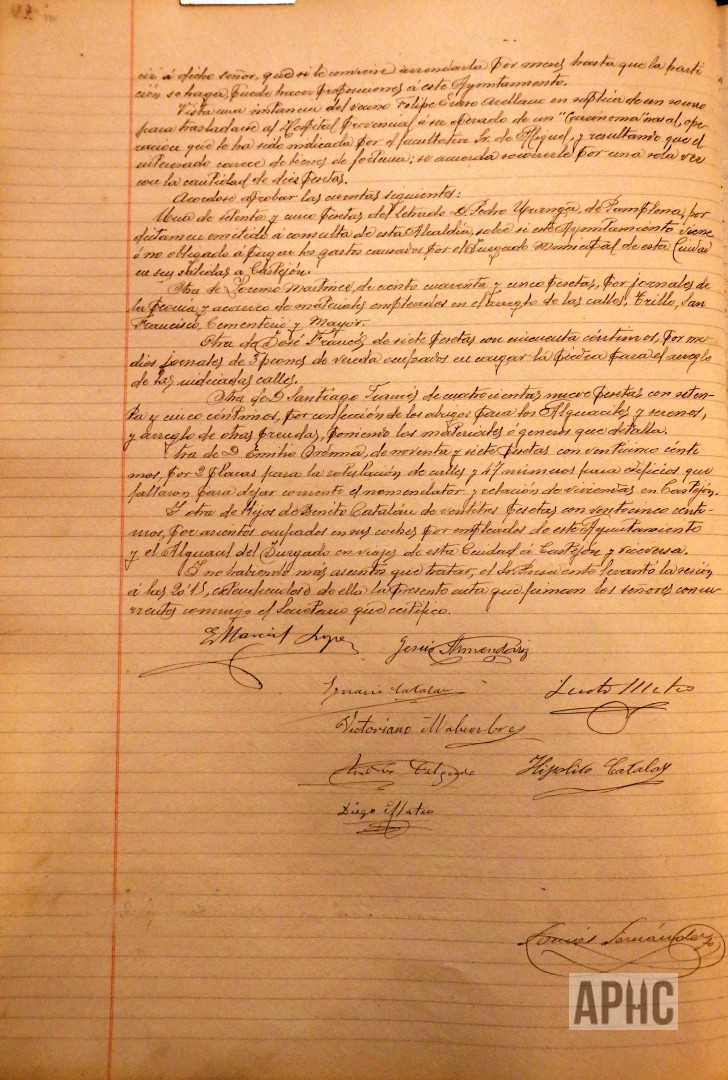 cir á dicho señor, que si le conviene arrendarla por meses hasta que la parti
ción se haga, puede hacer proposiciones á este Ayuntamiento.
Vista una instancia del vecino Felipe Orovio Arellano en súplica de un socorro
para trasladarse al Hospital Provincial á ser operado de un "Carcinoma nasal, ope
ración que le ha sido indicada por el facultativo Sr. de Miguel, y resultando que el
interesado carece de bienes de fortuna; se acuerda socorrerle por una sola vez
con la cantidad de diez pesetas.
Acordose aprobar las cuentas siguientes:
Una de setenta y cinco pesetas del letrado D. Pedro Uranga, de Pamplona, por
dictamen emitido á consulta de esta Alcaldía, sobre si este Ayuntamiento viene
ó no obligado á pagar los gastos causados por el Juzgado Municipal de esta Ciudad
en sus salidas a Castejón.
Otra de Lorenzo Martínez, de ciento cuarenta y cinco pesetas, por jornales de
la brecia y acarreo de materiales empleados en el arreglo de las calles, Trillo, San
Francisco, Cementerio y Mayor.
Otra de José Francés de siete pesetas con cincuenta céntimos, por me
dios jornales de 3 peones de vereda ocupados en cargar la piedra para el arreglo
de las indicadas calles.
Otra de D. Santiago Turmes de cuatrocientas nueve pesetas con seten
ta y cinco céntimos, por confección de los abrigos para los Alguaciles y serenos,
y arreglo de otras prendas, poniendo los materiales ó generos que detalla.
Otra de D. Emilio de noventa y siete pesetas con veinticinco cénti
mos, por 2 placas para la rotulación de calles y 47 números para edificios que
faltaron para dejar corriente el nomenclator y relación de viviendas en Castejón.
Y otra de Hijos de Benito Catalán de veintitres pesetas con veinticinco cénti
mos, por asientos ocupados en sus coches por empleados de este Ayuntamiento
y el Alguacil del Juzgado en viajes de esta Ciudad á Castejón y viceversa.
Y no habiendo más asuntos que tratar, el Sr. Presidente levantó la sesión
á las 20'15, extendiendose de ella la presente acta que firman los señores concu
rrentes conmigo el Secretario que certifico.
E Marcial Lopez Jesús Armendáriz
Ignacio Catalán Justo Mateo
Victoriano
Hipolito Catalan
Diego Mateo
Tomás Fernández
APHC